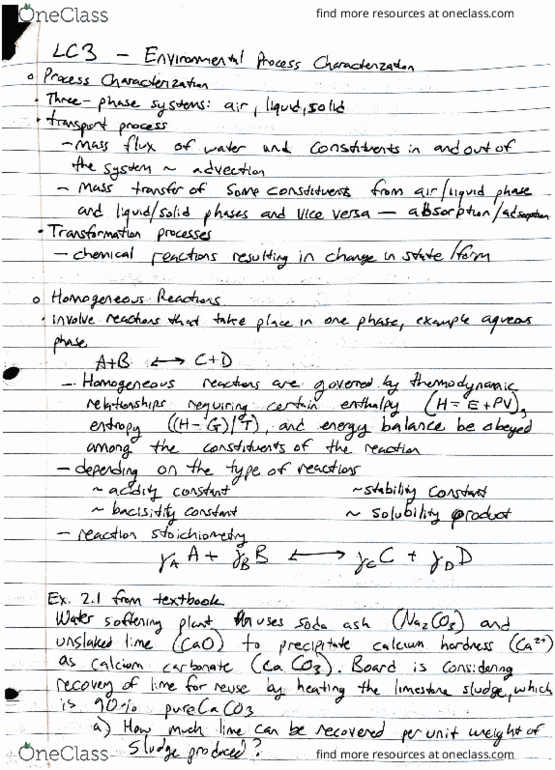 OneClass find more resources at oneclass.com
LC3 – Environmental Process Characterization
o Process Characterization
• Three-phase systems: air, liquid, solid
• transport process
– mass flux of water and constituents in and out of
the system ~ advection
– mass transfer of some constituents from air/liquid phase
and liquid/solid phases and vice versa — absorption/adsorption
• Transformation processes
– chemical reactions resulting in change in state/form
o Homogeneous Reactions
• involve reactions that take place in one phase, example aqueous
phase
A+B ⟷ C+D
– Homogeneous reactions are governed by thermodynamic
relationships requiring certain enthalpy (H = E + PV),
entropy ((H-G)/T), and energy balance be obeyed
among the constituents of the reaction
– depending on the type of reactions
~ acidity constant ~ stability constant
~ bacisitity constant ~ solubility product
– reaction stoichiometry
γA A + γB B ⟷ γC C + γD D
Ex. 2.1 from textbook
Water softening plant uses soda ash (Na2CO3) and
unslaked lime (CaO) to precipitate calcium hardness (Ca2+)
as calcium carbonate (CaCO3). Board is considering
recovery of lime for reuse by heating the limestone sludge, which
is 90% pure CaCO3
a) How much lime can be recovered per unit weight of
sludge produced?
OneClass find more resources at oneclass.com